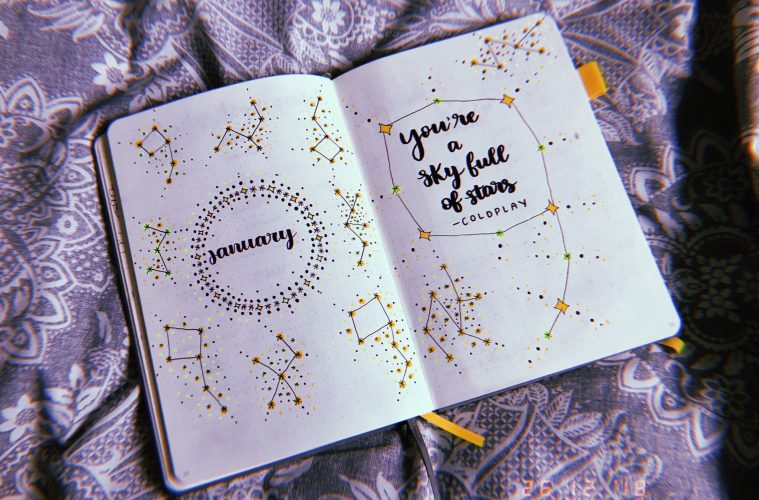 january
you're
a
sky full
of stars
-COLDPLAY
25 12 '18